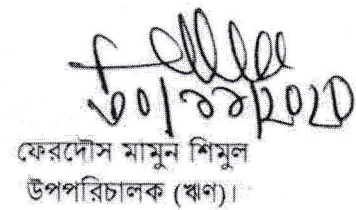 ৩০/১১/২০২০
ফেরদৌস মামুন শিমুল
উপপরিচালক (ঋণ)।